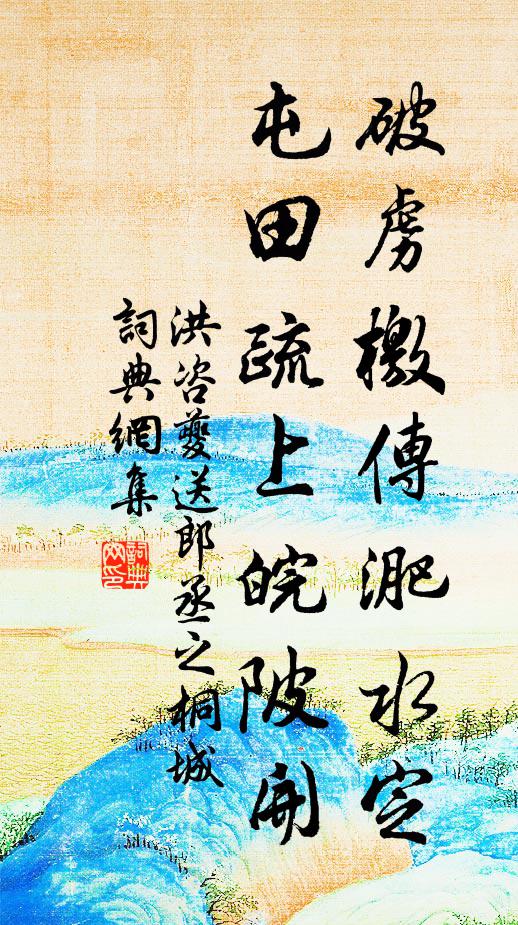 破虜檄傳淝水定
屯田疏上皖陂開
洪咨夔送郎丞之桐城
詞典網集
詞典網印